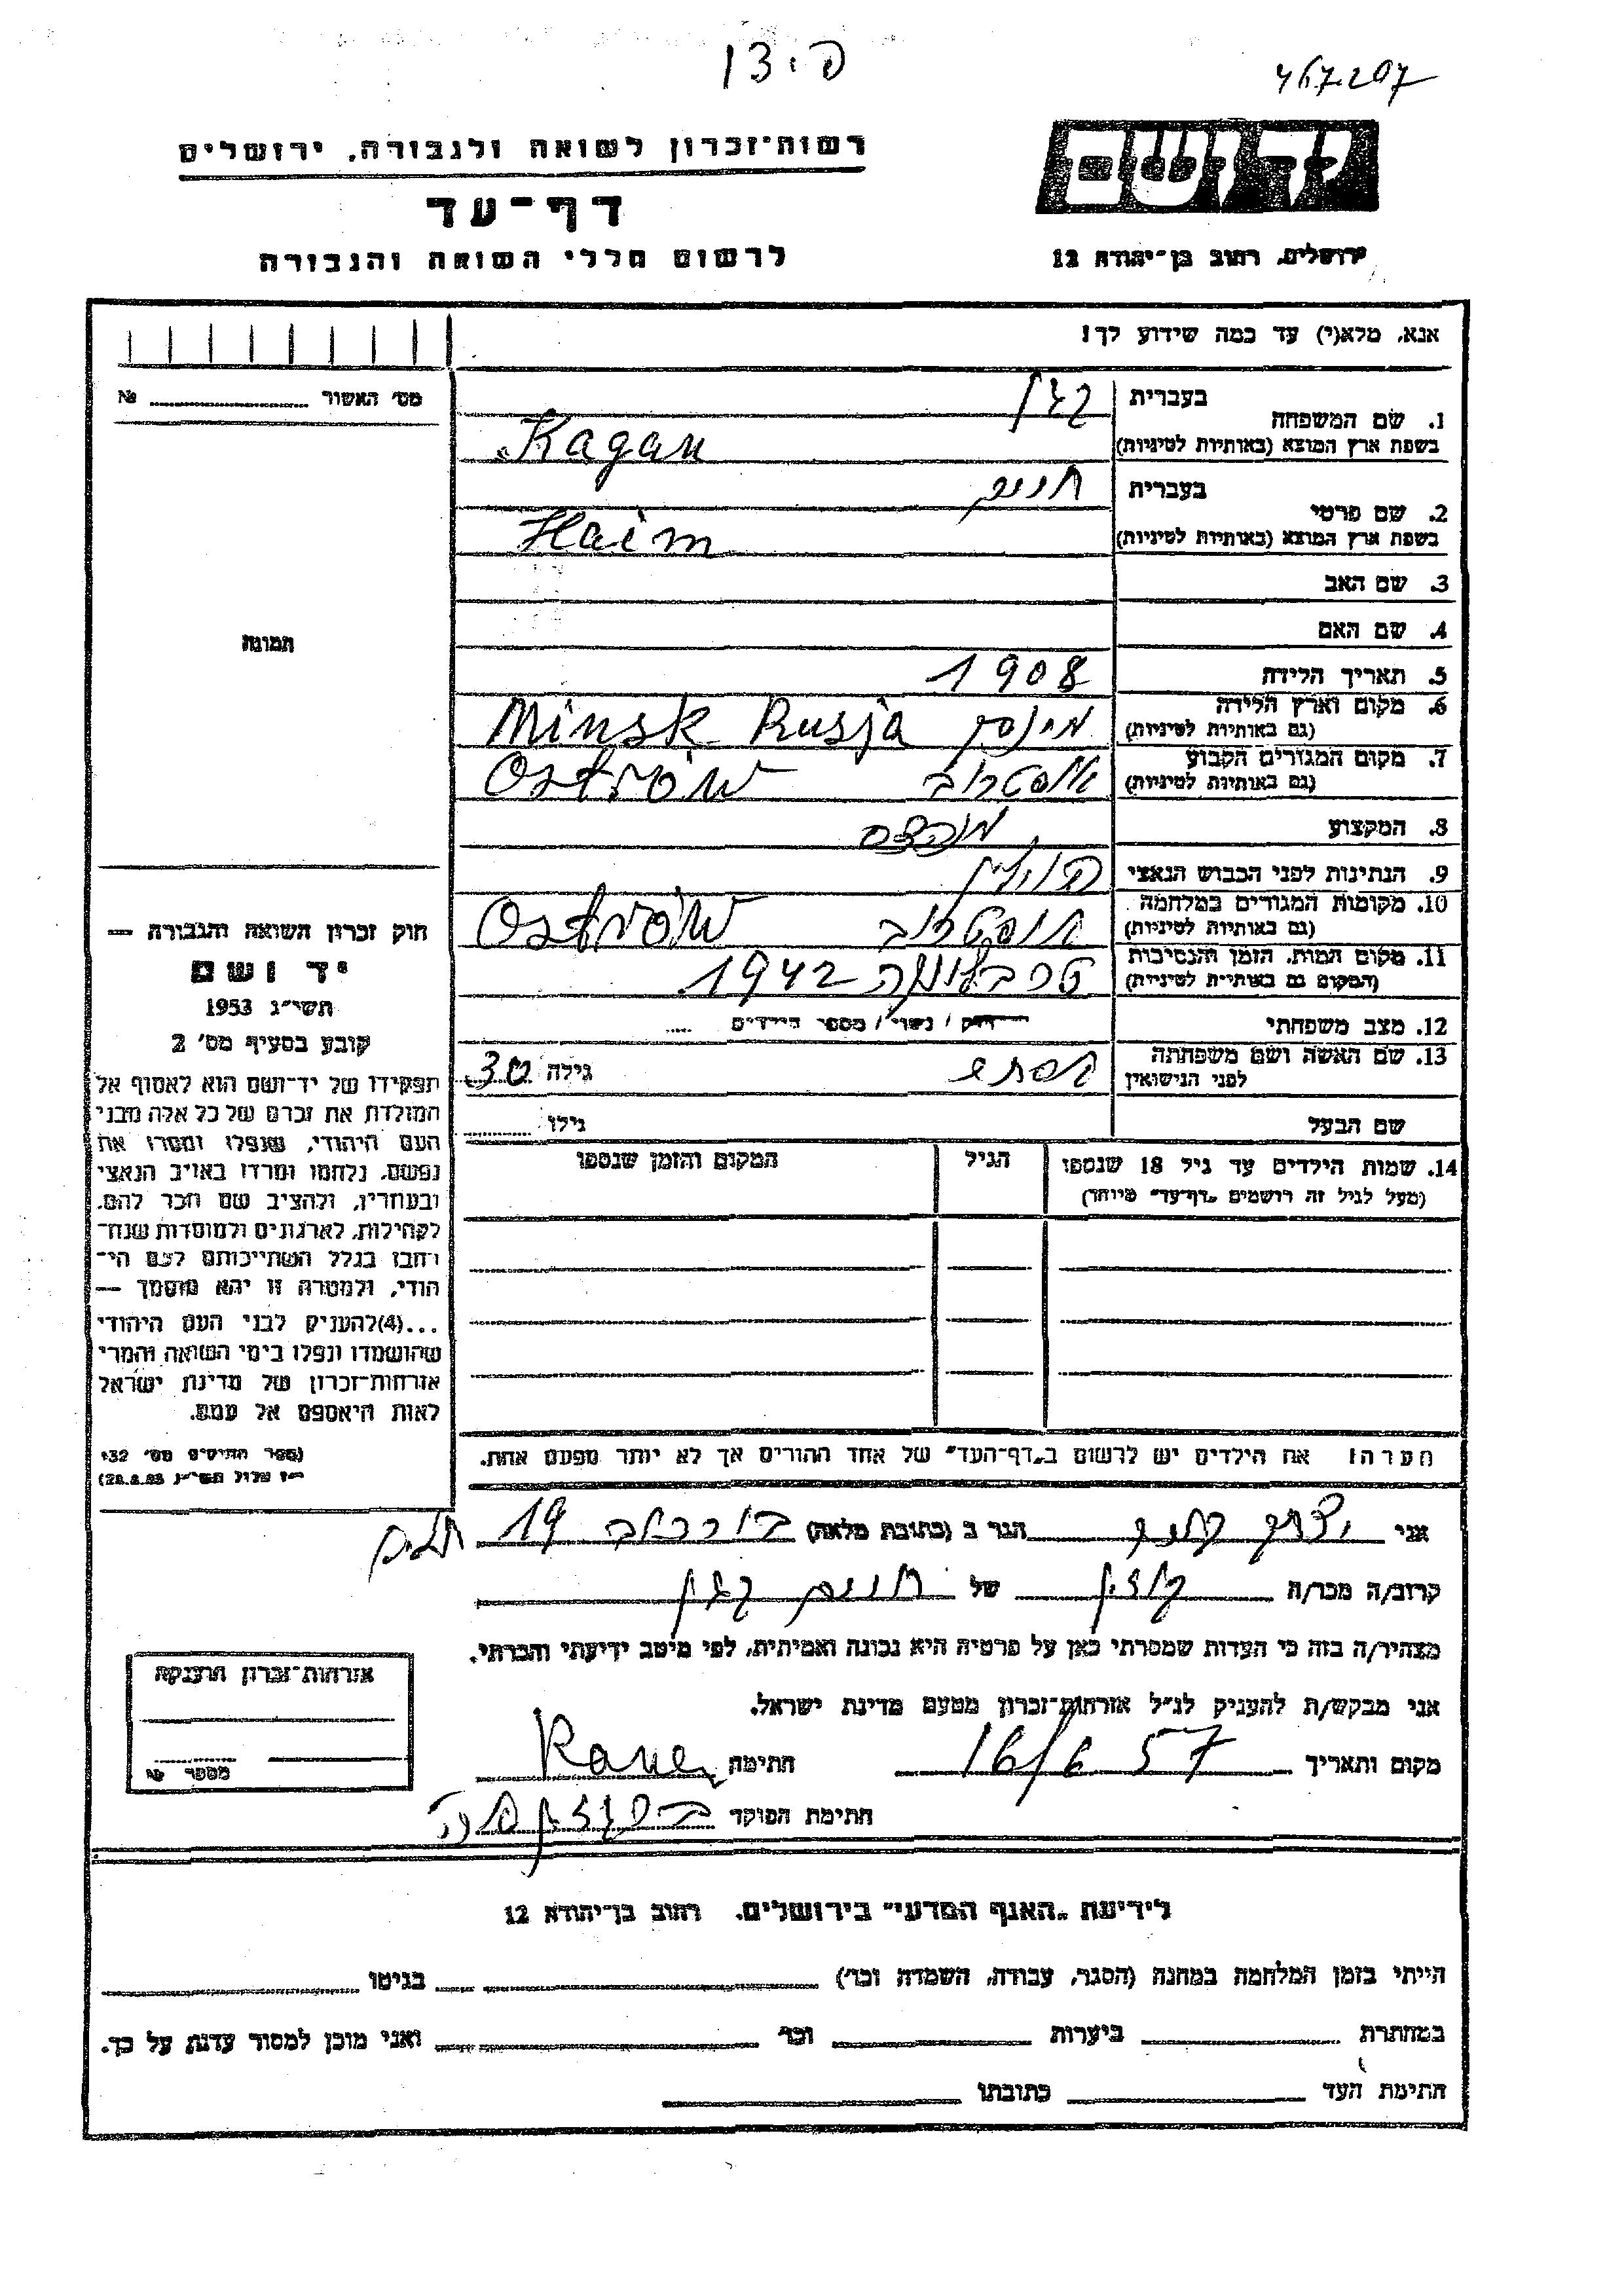 פ.צן
467.207
יד ושם
רשות־זכרון לשואה ולגבורה, ירושלים
דף־עד
לרשום חללי השואה והגבורה
ירושלים, רחוב בן־יהודה 12
אנא, מלא(י) עד כמה שידוע לך!
מס' האשור № 
1. שם המשפחה בעברית קגן
בשפת ארץ המוצא (באותיות לטיניות) Kagan
2. שם פרטי בעברית חיים
בשפת ארץ המוצא (באותיות לטיניות) Haim
3. שם האב
4. שם האם
תמונה
5. תאריך הלידה 1908
6. מקום וארץ הלידה (גם באותיות לטיניות) מינסק Minsk Rusja
7. מקום המגורים הקבוע (גם באותיות לטיניות) אוסטרוב Ostrów
8. המקצוע
9. הנתינות לפני הכבוש הנאצי פולין
10. מקומות המגורים במלחמה (גם באותיות לטיניות) אוסטרוב Ostrów
11. מקום המות, הזמן והנסיבות (המקום גם באותיות לטיניות) טרבלינקה 1942
12. מצב משפחתי רווק / נשוי / מספר הילדים
13. שם האשה ושם משפחתה לפני הנישואין אסתר גילה 30
שם הבעל גילו
14. שמות הילדים עד גיל 18 שנספו
(מעל לגיל זה רושמים "דף־עד" מיוחד)
הגיל
המקום והזמן שנספו
חוק זכרון השואה והגבורה —
יד ושם
תשי"ג 1953
קובע בסעיף מס' 2
תפקידו של יד־ושם הוא לאסוף אל
המולדת את זכרם של כל אלה מבני
העם היהודי, שנפלו ומסרו את
נפשם, נלחמו ומרדו באויב הנאצי
ובעוזריו, ולהציב שם וזכר להם,
לקהילות, לארגונים ולמוסדות שנח־
רבו בגלל השתייכותם לעם הי־
הודי, ולמטרה זו יהא מוסמך —
...(4)להעניק לבני העם היהודי
שהושמדו ונפלו בימי השואה והמרי
אזרחות־זכרון של מדינת ישראל
לאות היאספם אל עמם.
(ספר החוקים מס' 132
י"ז אלול תשי"ג 28.8.53)
הערה: את הילדים יש לרשום ב"דף־העד" של אחד ההורים אך לא יותר מפעם אחת.
אני יצחק הגר ב (כתובת מלאה) 19
קרוב/ה מכר/ה של חיים קגן
מצהיר/ה בזה כי העדות שמסרתי כאן על פרטיה היא נכונה ואמיתית, לפי מיטב ידיעתי והכרתי.
אני מבקש/ת להעניק לנ"ל אזרחות־זכרון מטעם מדינת ישראל.
מקום ותאריך 16/6 57 חתימה
חתימת הפוקד
אזרחות־זכרון הוענקה
מספר №
לידיעת "האגף המדעי" בירושלים, רחוב בן־יהודה 12
הייתי בזמן המלחמה במחנה (הסגר, עבודה, השמדה וכד') בגיטו
במחתרת ביערות וכד' ואני מוכן למסור עדות על כך.
חתימת העד כתובתו